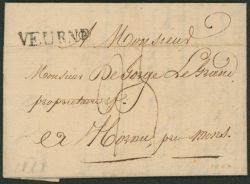 VEURNE
A Monsieur
Monsieur De Gorge Le Grand
proprietaire
a Hornu, près Mons.